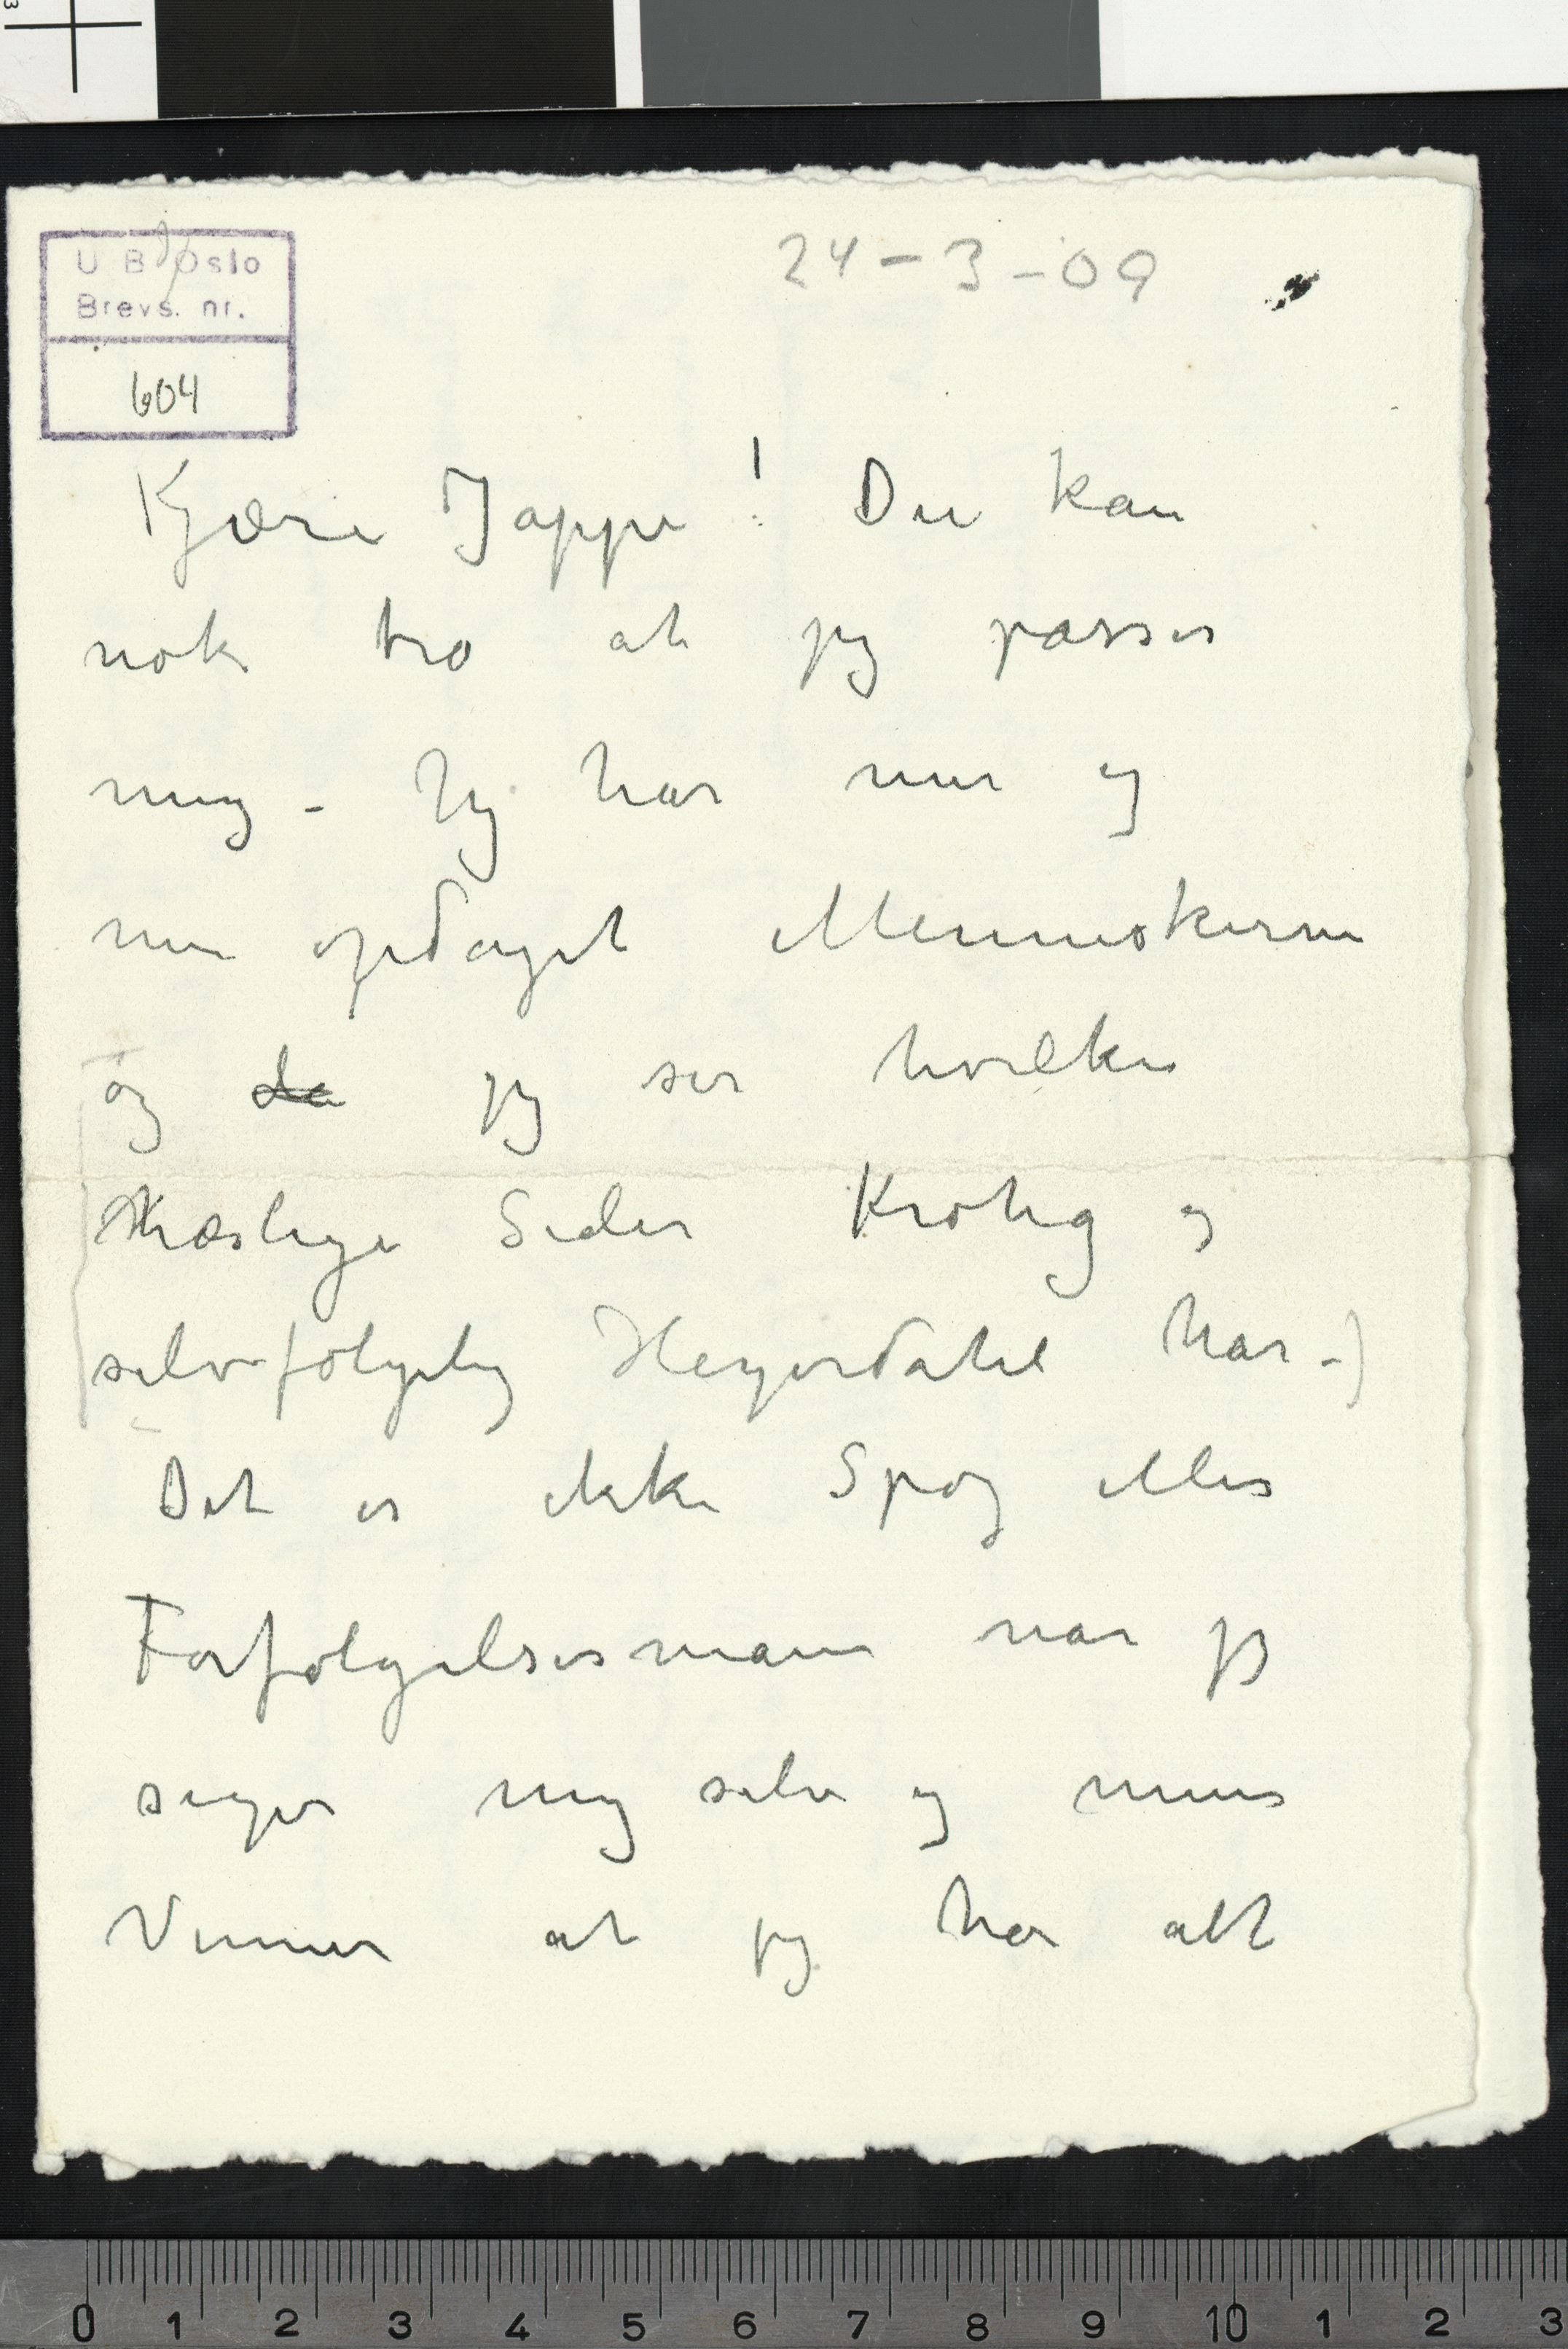 U B Oslo
Brevs. nr.
604
24-3-09
Kjære Jappe! Du kan
nok tro at jeg passer
mig – Jeg har mer og
mer opdaget Menneskerne
og da jeg ser hvilke
hæslige Sider Krohg og
selvfølgelig Heyerdahl har –)
Det er ikke Spøg eller
Forfølgelsesmani når jeg
siger mig selv og mine
Venner at jeg har alt
0 1 2 3 4 5 6 7 8 9 10 1 2 3